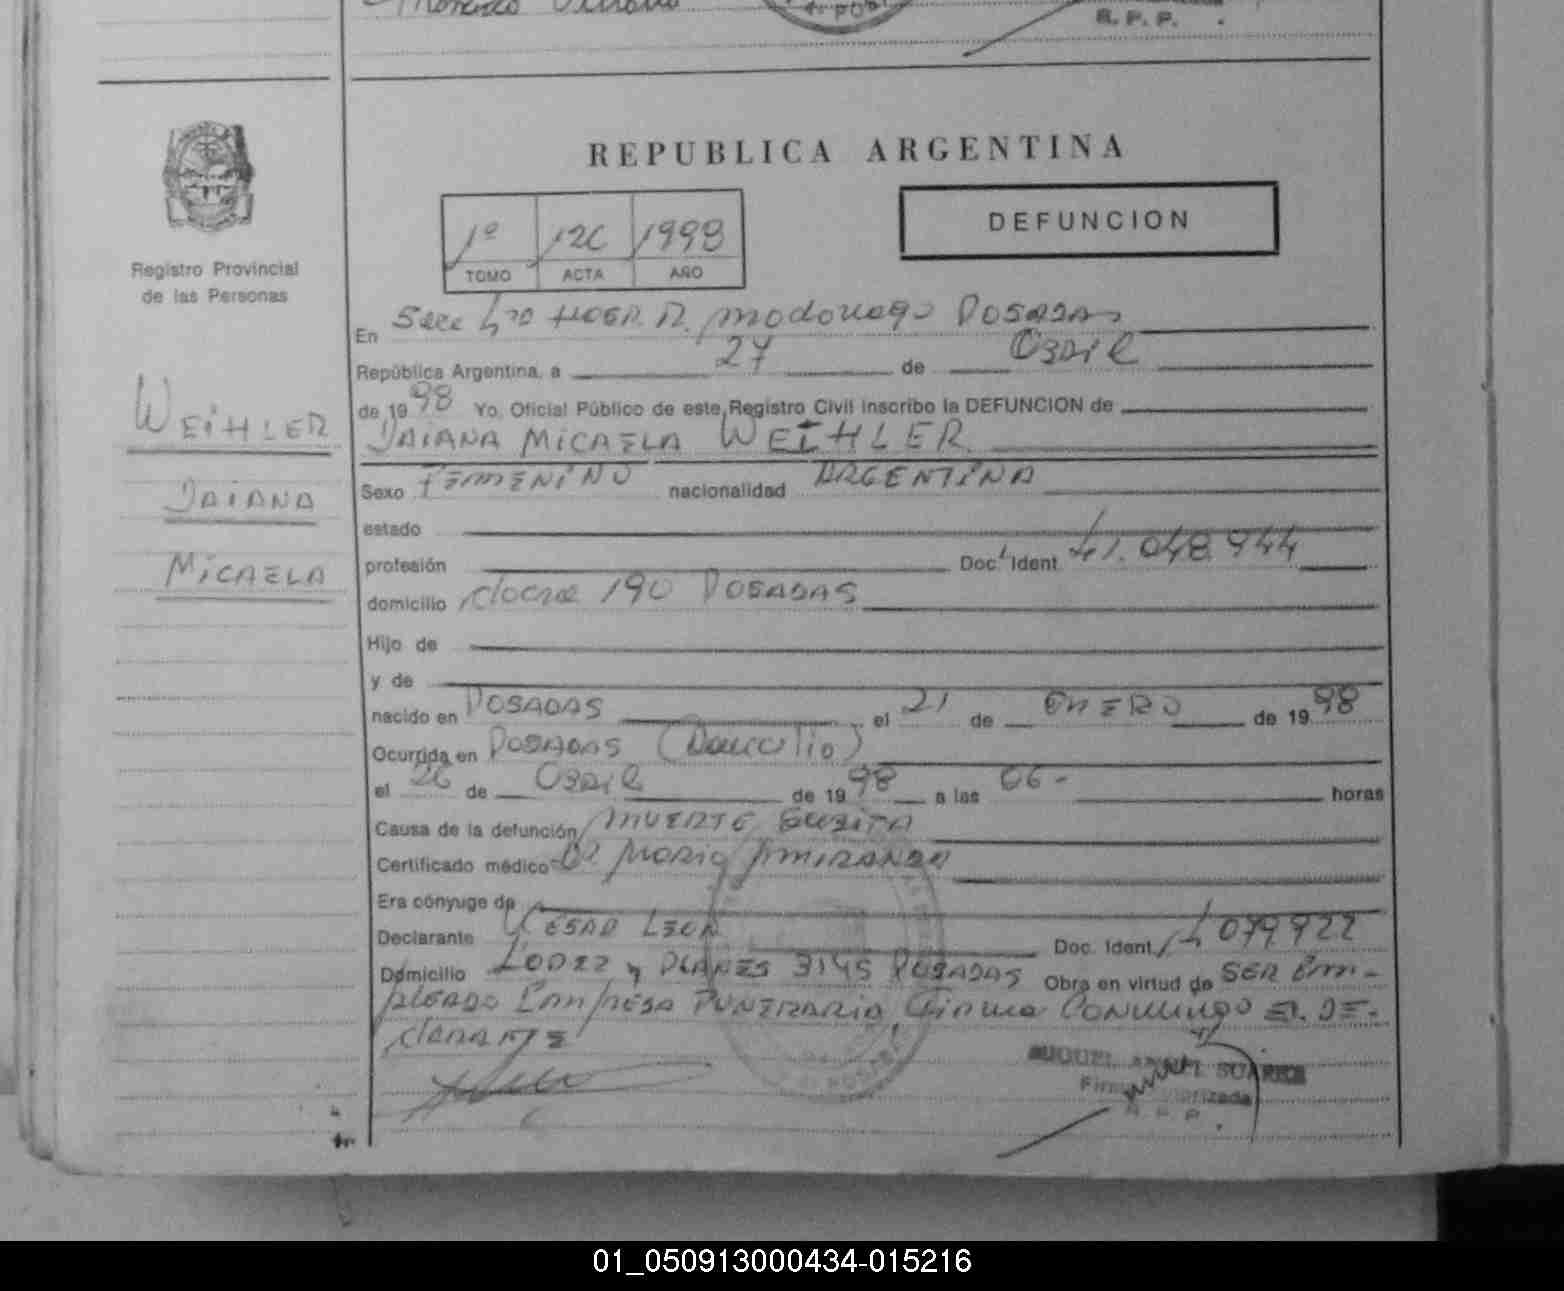 R. P. P.
REPUBLICA ARGENTINA
DEFUNCION
1º 126 1998
TOMO ACTA AÑO
Registro Provincial
de las Personas
En Secc Hosp. R. Madariaga POSADAS
República Argentina, a 27 de ABRIL
de 1998 Yo, Oficial Público de este Registro Civil inscribo la DEFUNCION de
DAIANA MICAELA WEIHLER
WEIHLER
DAIANA
MICAELA
Sexo FEMENINO nacionalidad ARGENTINA
estado
profesión Doc. Ident. 41.048.944
domicilio 190 POSADAS
Hijo de
y de
nacido en POSADAS el 21 de ENERO de 1998
Ocurrida en POSADAS (Domicilio)
el 26 de ABRIL de 1998 a las 06- horas
Causa de la defunción MUERTE SUBITA
Certificado médico Dr Mario MIRANDA
Era cónyuge de
Declarante CESAR LEON Doc. Ident.
Domicilio LOPEZ y PLANES 3145 POSADAS Obra en virtud de SER Em-
pleado Empresa FUNERARIA, Firma Conmigo El DE-
clarante
MIGUEL ANGEL SUAREZ
Firma Autorizada
R. P. P.
01_050913000434-015216